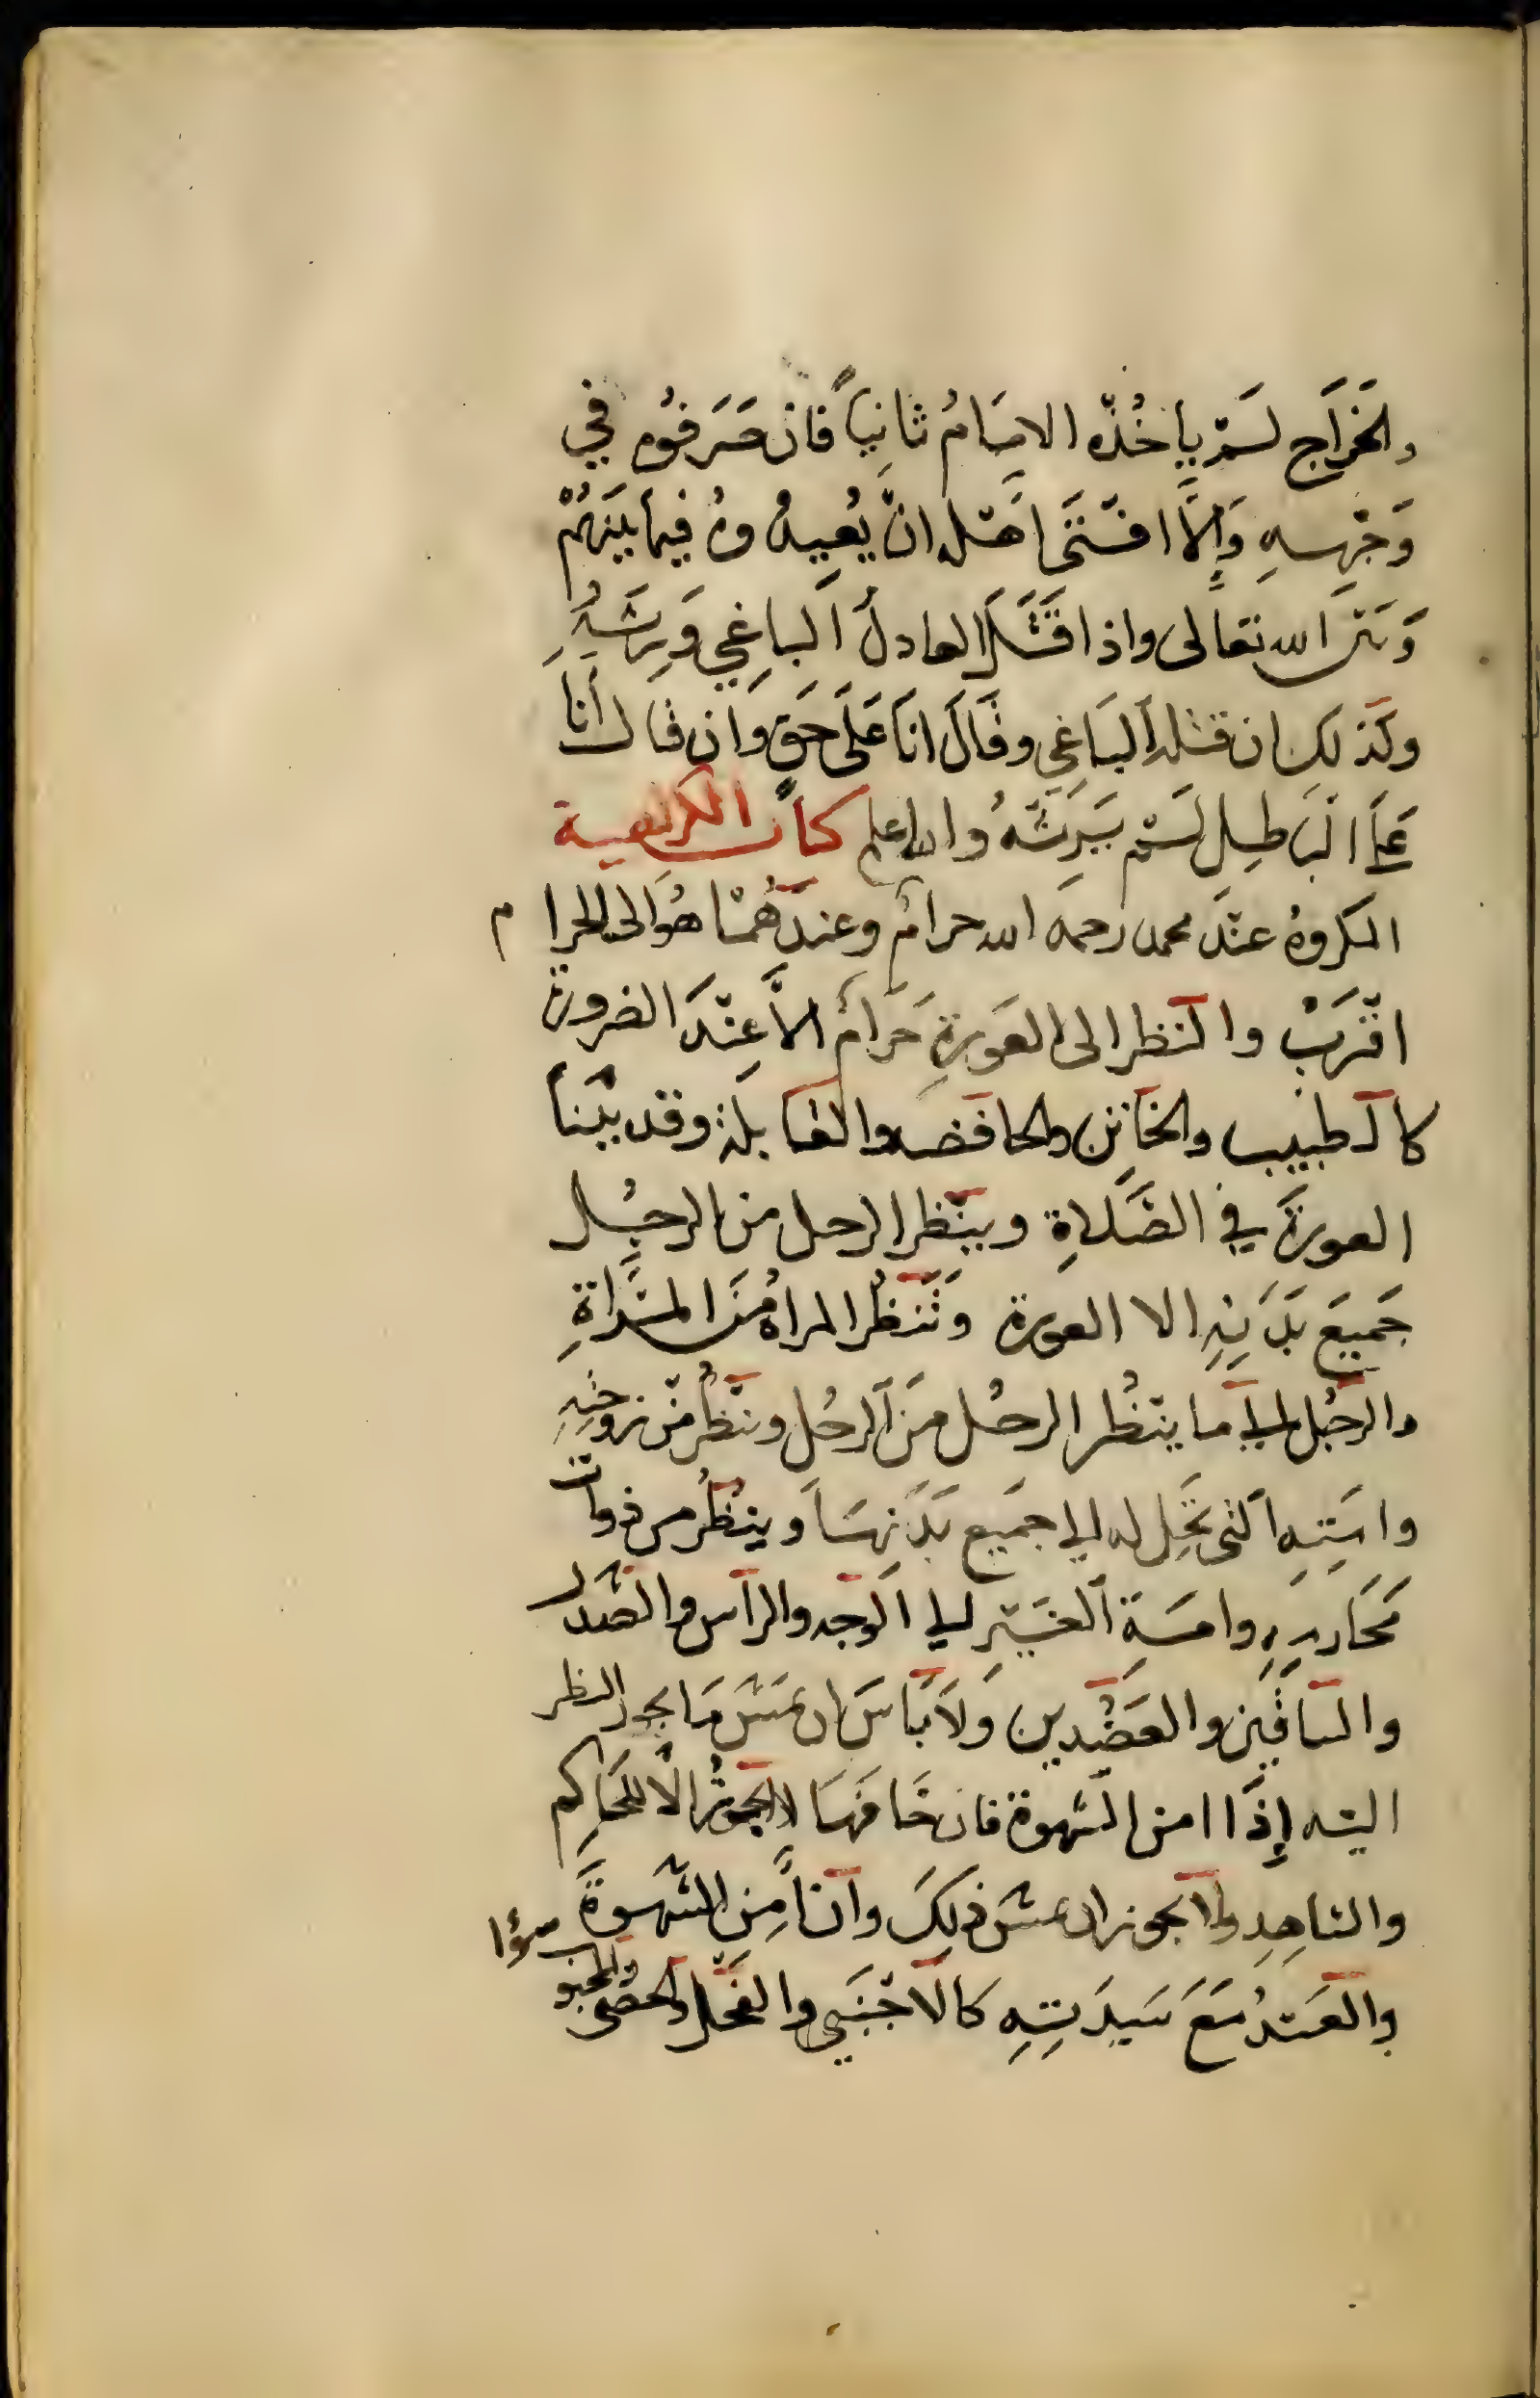 والخَرَاج لَمْ ياخُذْه الامَامُ ثانِياً فان صَرَفوُه في
وَجْهِهِ وَاِلَّا افتَى اَهْله انْ يُعِيدُوهُ فيما بَيْنَهُمْ
وَبَيْنَ الله تعالى واذا قَتَلَ العادلُ الباغِي وَرِثَهُ
وكَذلِكِ ان قتله البَاغِي وقَالَ انَا عَلَى حَقٍ وَان قَال اَنا
عَلَى البَاطِلِ لَمْ يَرِثهُ والله اعلم كتاب الكراهية
المكروهُ عنْدَ محمد رحمه الله حرامٌ وعندَهُمَا هُوَ الى الحرام
اقْرَبُ والنظر الى العَورةِ حَرَامٌ الاَّ عِنْدَ الضرورة
كالطبيب والخاتِن والخافضه والقابلة وقد بيَّنا
العورةَ في الصَّلاةِ وينْظر الرجل من الرجُل
جَميعَ بَدَنِهِ الا العورة وَتَنظُر المراةُ مِنَ المَرْاةِ
والرجُل الى ما ينْظُر الرجُل مِنَ الرجُل وينْظُر مِنْ زوجَتِهِ
وامَتِهِ التى تَحِل له الى جَميع بَدَنِهَا وينظُر من ذوات
مَحَارمِهِ وامَةِ الغَيْرِ الى الوَجه والراس والصَدْر
والسَاقَين والعَضُدين وَلَا بَاسَ ان يمسَّ مَا يجوز النظر
اليْه إِذَا امن الشهوة فان خَافَهَا لا يجوزُ الَّا للحَاكِم
والشاهِدِ ولا يجوز ان يمسَّ ذلِكَ وان اَمِنَ الشَهْوةَ
والعَبْدُ مَعَ سَيِدَتِهِ كالاجْنَبي والفَحل والخصى والمجبوب سوٓاء